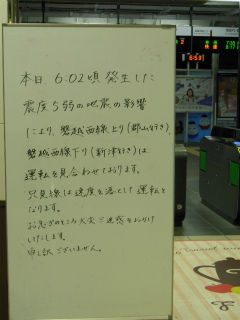 本日 6:02頃発生した
震度5弱の地震の影響
により、磐越西線上り(郡山行き)、
磐越西線下り(新津行き)は
運転を見合わせております。
只見線は速度を落として運転と
なります。
お急ぎのところ大変ご迷惑をおかけ
いたします。
申し訳ございません。